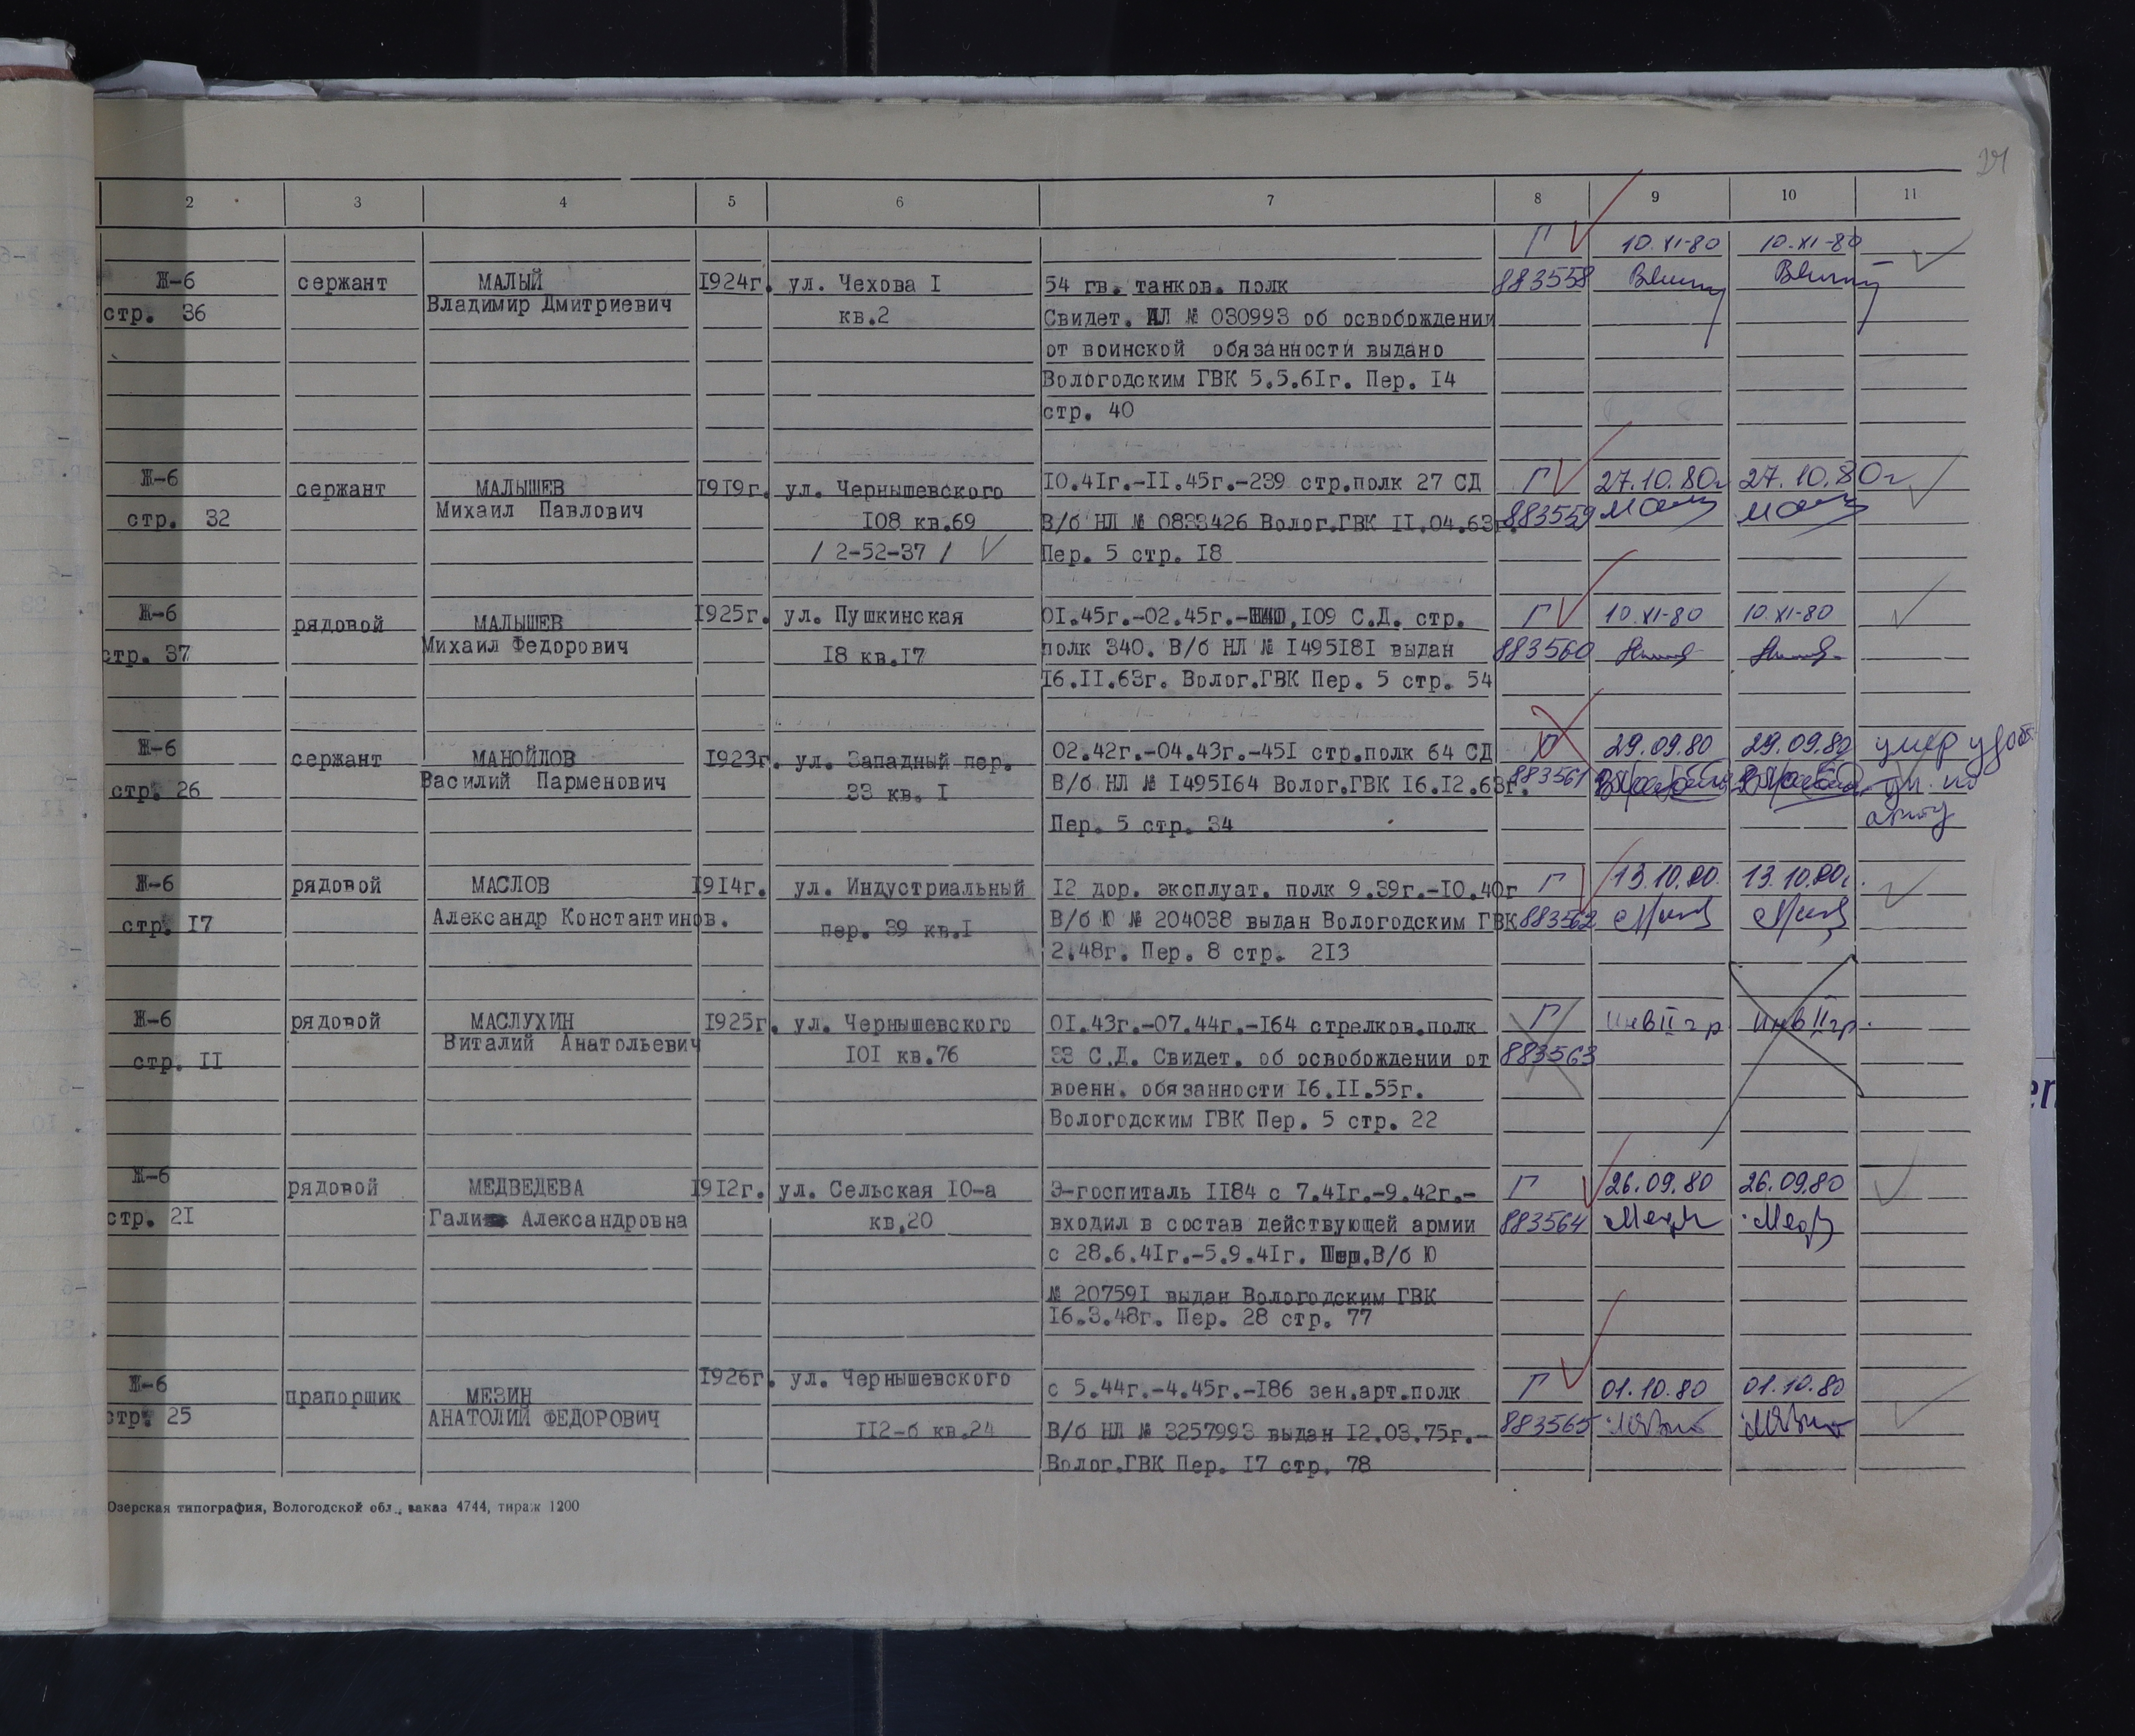 2 3 4 5 6 7 8 9 10 11
Г 10.XI-80 10.XI-80
Ж-6 сержант МАЛЫЙ 1924г. ул. Чехова I 54 гв. танков. полк 883558
стр. 36 Владимир Дмитриевич кв.2 Свидет. ИЛ № 030993 об освобождении
от воинской обязанности выдано
Вологодским ГВК 5.5.61г. Пер. 14
стр. 40
Ж-6 сержант МАЛЫШЕВ 1919г. ул. Чернышевского 10.41г.-11.45г.-239 стр.полк 27 СД Г 27.10.80г 27.10.80г
стр. 32 Михаил Павлович 108 кв.69 В/б НЛ № 0833426 Волог.ГВК 11.04.63г. 883559
/ 2-52-37 / Пер. 5 стр. 18
Ж-6 рядовой МАЛЫШЕВ 1925г. ул. Пушкинская 01.45г.-02.45г.- 109 С.Д. стр. Г 10.XI-80 10.XI-80
стр. 37 Михаил Федорович 18 кв.17 полк 340. В/б НЛ № 1495181 выдан 883560
16.11.63г. Волог.ГВК Пер. 5 стр. 54
Ж-6 сержант МАНОЙЛОВ 1923г. ул. Западный пер. 02.42г.-04.43г.-451 стр.полк 64 СД 29.09.80 29.09.80 умер удост
стр. 26 Василий Парменович 33 кв. I В/б НЛ № 1495164 Волог.ГВК 16.12.63г. 883561 ун. по
Пер. 5 стр. 34 акту
Ж-6 рядовой МАСЛОВ 1914г. ул. Индустриальный 12 дор. эксплуат. полк 9.39г.-10.40г Г 13.10.80. 13.10.80г.
стр. 17 Александр Константинов. пер. 39 кв.I В/б Ю № 204038 выдан Вологодским ГВК 883562
2.48г. Пер. 8 стр. 213
Ж-6 рядовой МАСЛУХИН 1925г. ул. Чернышевского 01.43г.-07.44г.-164 стрелков.полк Г Инв II гр Инв II гр.
стр. II Виталий Анатольевич 101 кв.76 33 С.Д. Свидет. об освобождении от 883563
военн. обязанности 16.11.55г.
Вологодским ГВК Пер. 5 стр. 22
Ж-6 рядовой МЕДВЕДЕВА 1912г. ул. Сельская 10-а Э-госпиталь 1184 с 7.41г.-9.42г.- Г 26.09.80 26.09.80
стр. 21 Галина Александровна кв.20 входил в состав действующей армии 883564
с 28.6.41г.-5.9.41г. В/б Ю
№ 207591 выдан Вологодским ГВК
16.3.48г. Пер. 28 стр. 77
Ж-6 прапорщик МЕЗИН 1926г. ул. Чернышевского с 5.44г.-4.45г.-186 зен.арт.полк Г 01.10.80 01.10.80
стр. 25 АНАТОЛИЙ ФЕДОРОВИЧ 112-б кв.24 В/б НЛ № 3257993 выдан 12.03.75г.- 883565
Волог.ГВК Пер. 17 стр. 78
Озерская типография, Вологодской обл., заказ 4744, тираж 1200